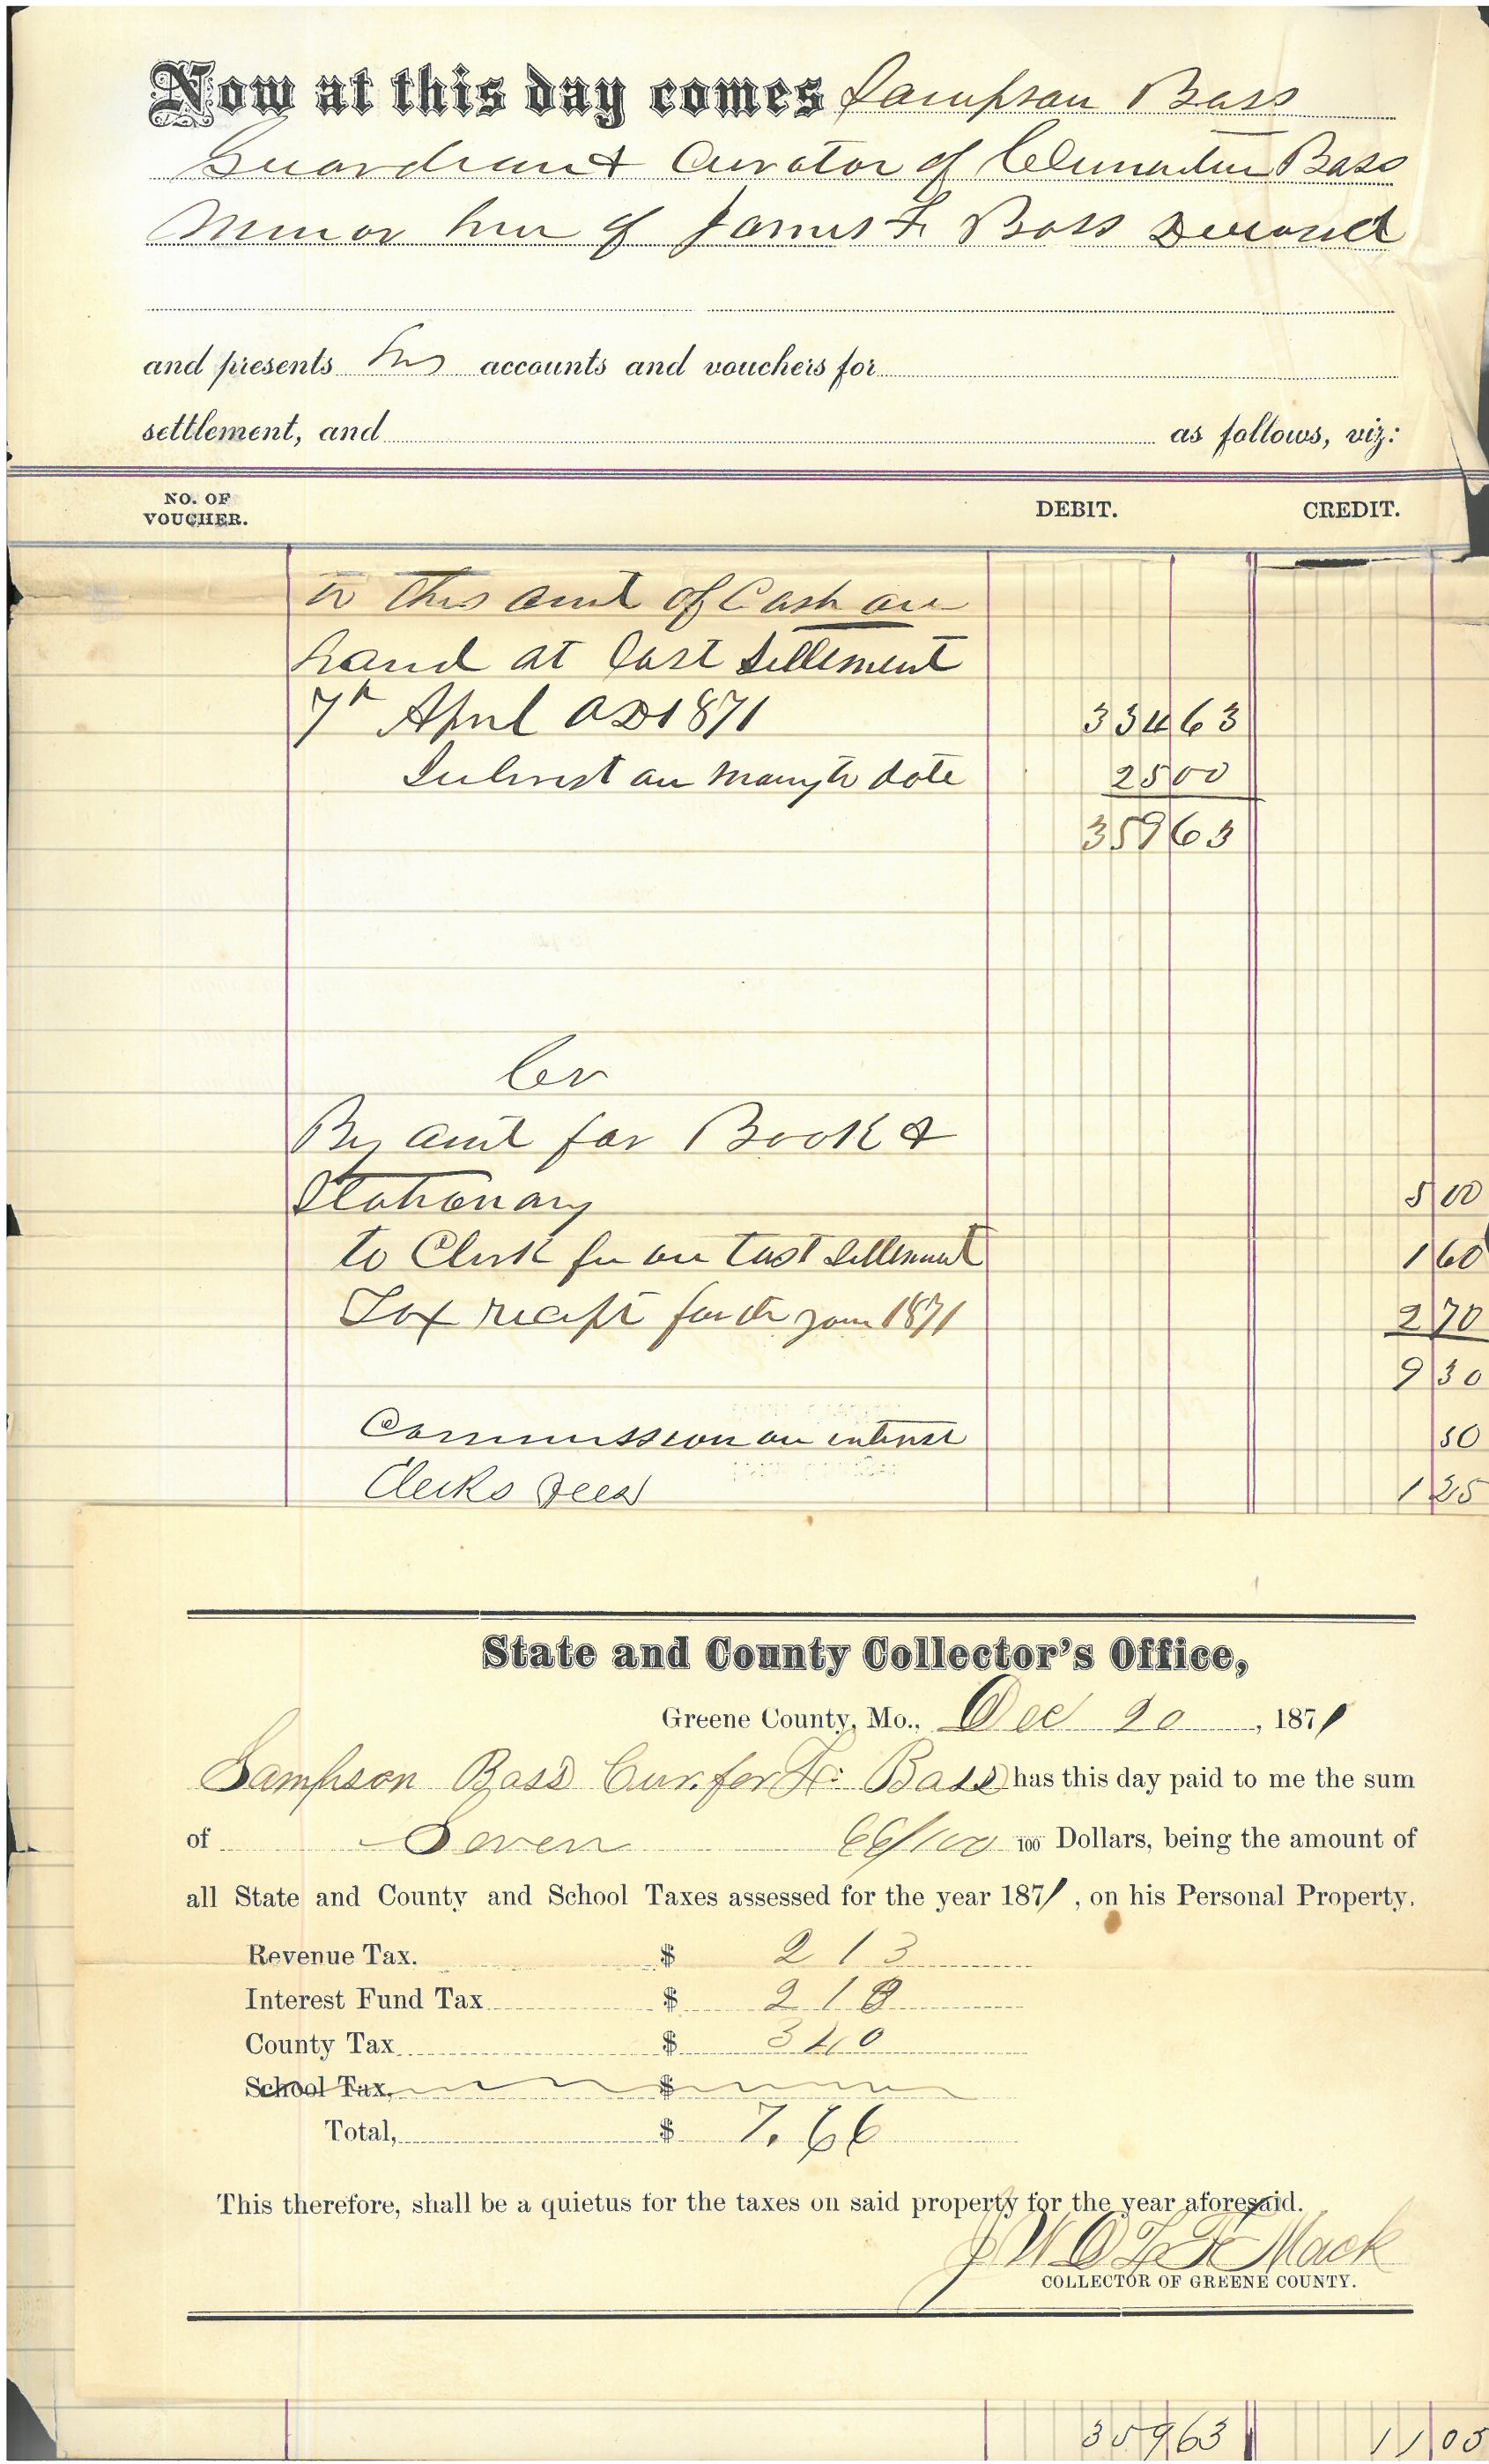 Now at this day comes Sampson Bass
Guardian & Curator of Clementine Bass
Minor heir of James F. Bass Deceased
and presents his accounts and vouchers for
settlement, and as follows, viz:
NO. OF VOUCHER. DEBIT. CREDIT.
to this amt of Cash on
hand at last Settlement
7th April AD 1871 334 63
Interest on money to date 25 00
359 63
Cr
By amt for Book &
Stationary 5 00
to Clerk fee on Last Settlement 1 60
Tax recept for the year 1871 2 70
9 30
Commission on interest 50
Clerks Fees 1 25
State and County Collector's Office,
Greene County, Mo., Dec 20, 1871
Sampson Bass Cur. for Bass has this day paid to me the sum
of Seven 66/100 100 Dollars, being the amount of
all State and County and School Taxes assessed for the year 1871, on his Personal Property.
Revenue Tax. $ 2 13
Interest Fund Tax $ 2 13
County Tax $ 3 40
School Tax, $
Total, $ 7.66
This therefore, shall be a quietus for the taxes on said property for the year aforesaid.
Mack
COLLECTOR OF GREENE COUNTY.
359 63 11 05